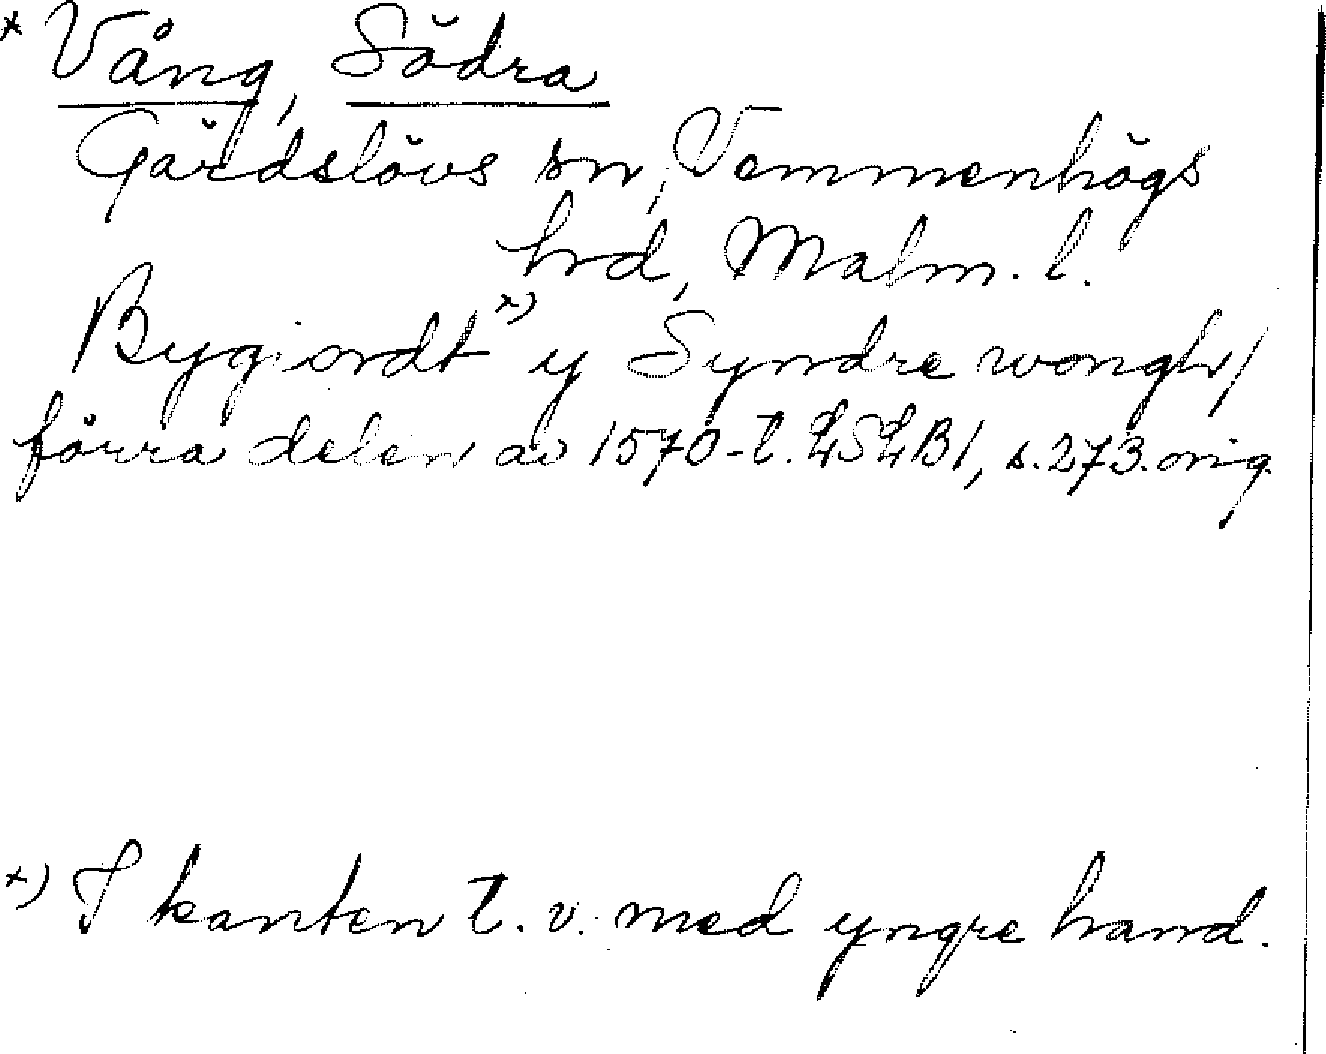 * Vång, Södra
Gärdslövs sn, Vemmenhögs
hrd, Malm. l.
Bygiordt x) y Syndre wongh/
förra delen av 1570-t. LSLB1, s. 273. orig.
x) I kanten t. v. med yngre hand.